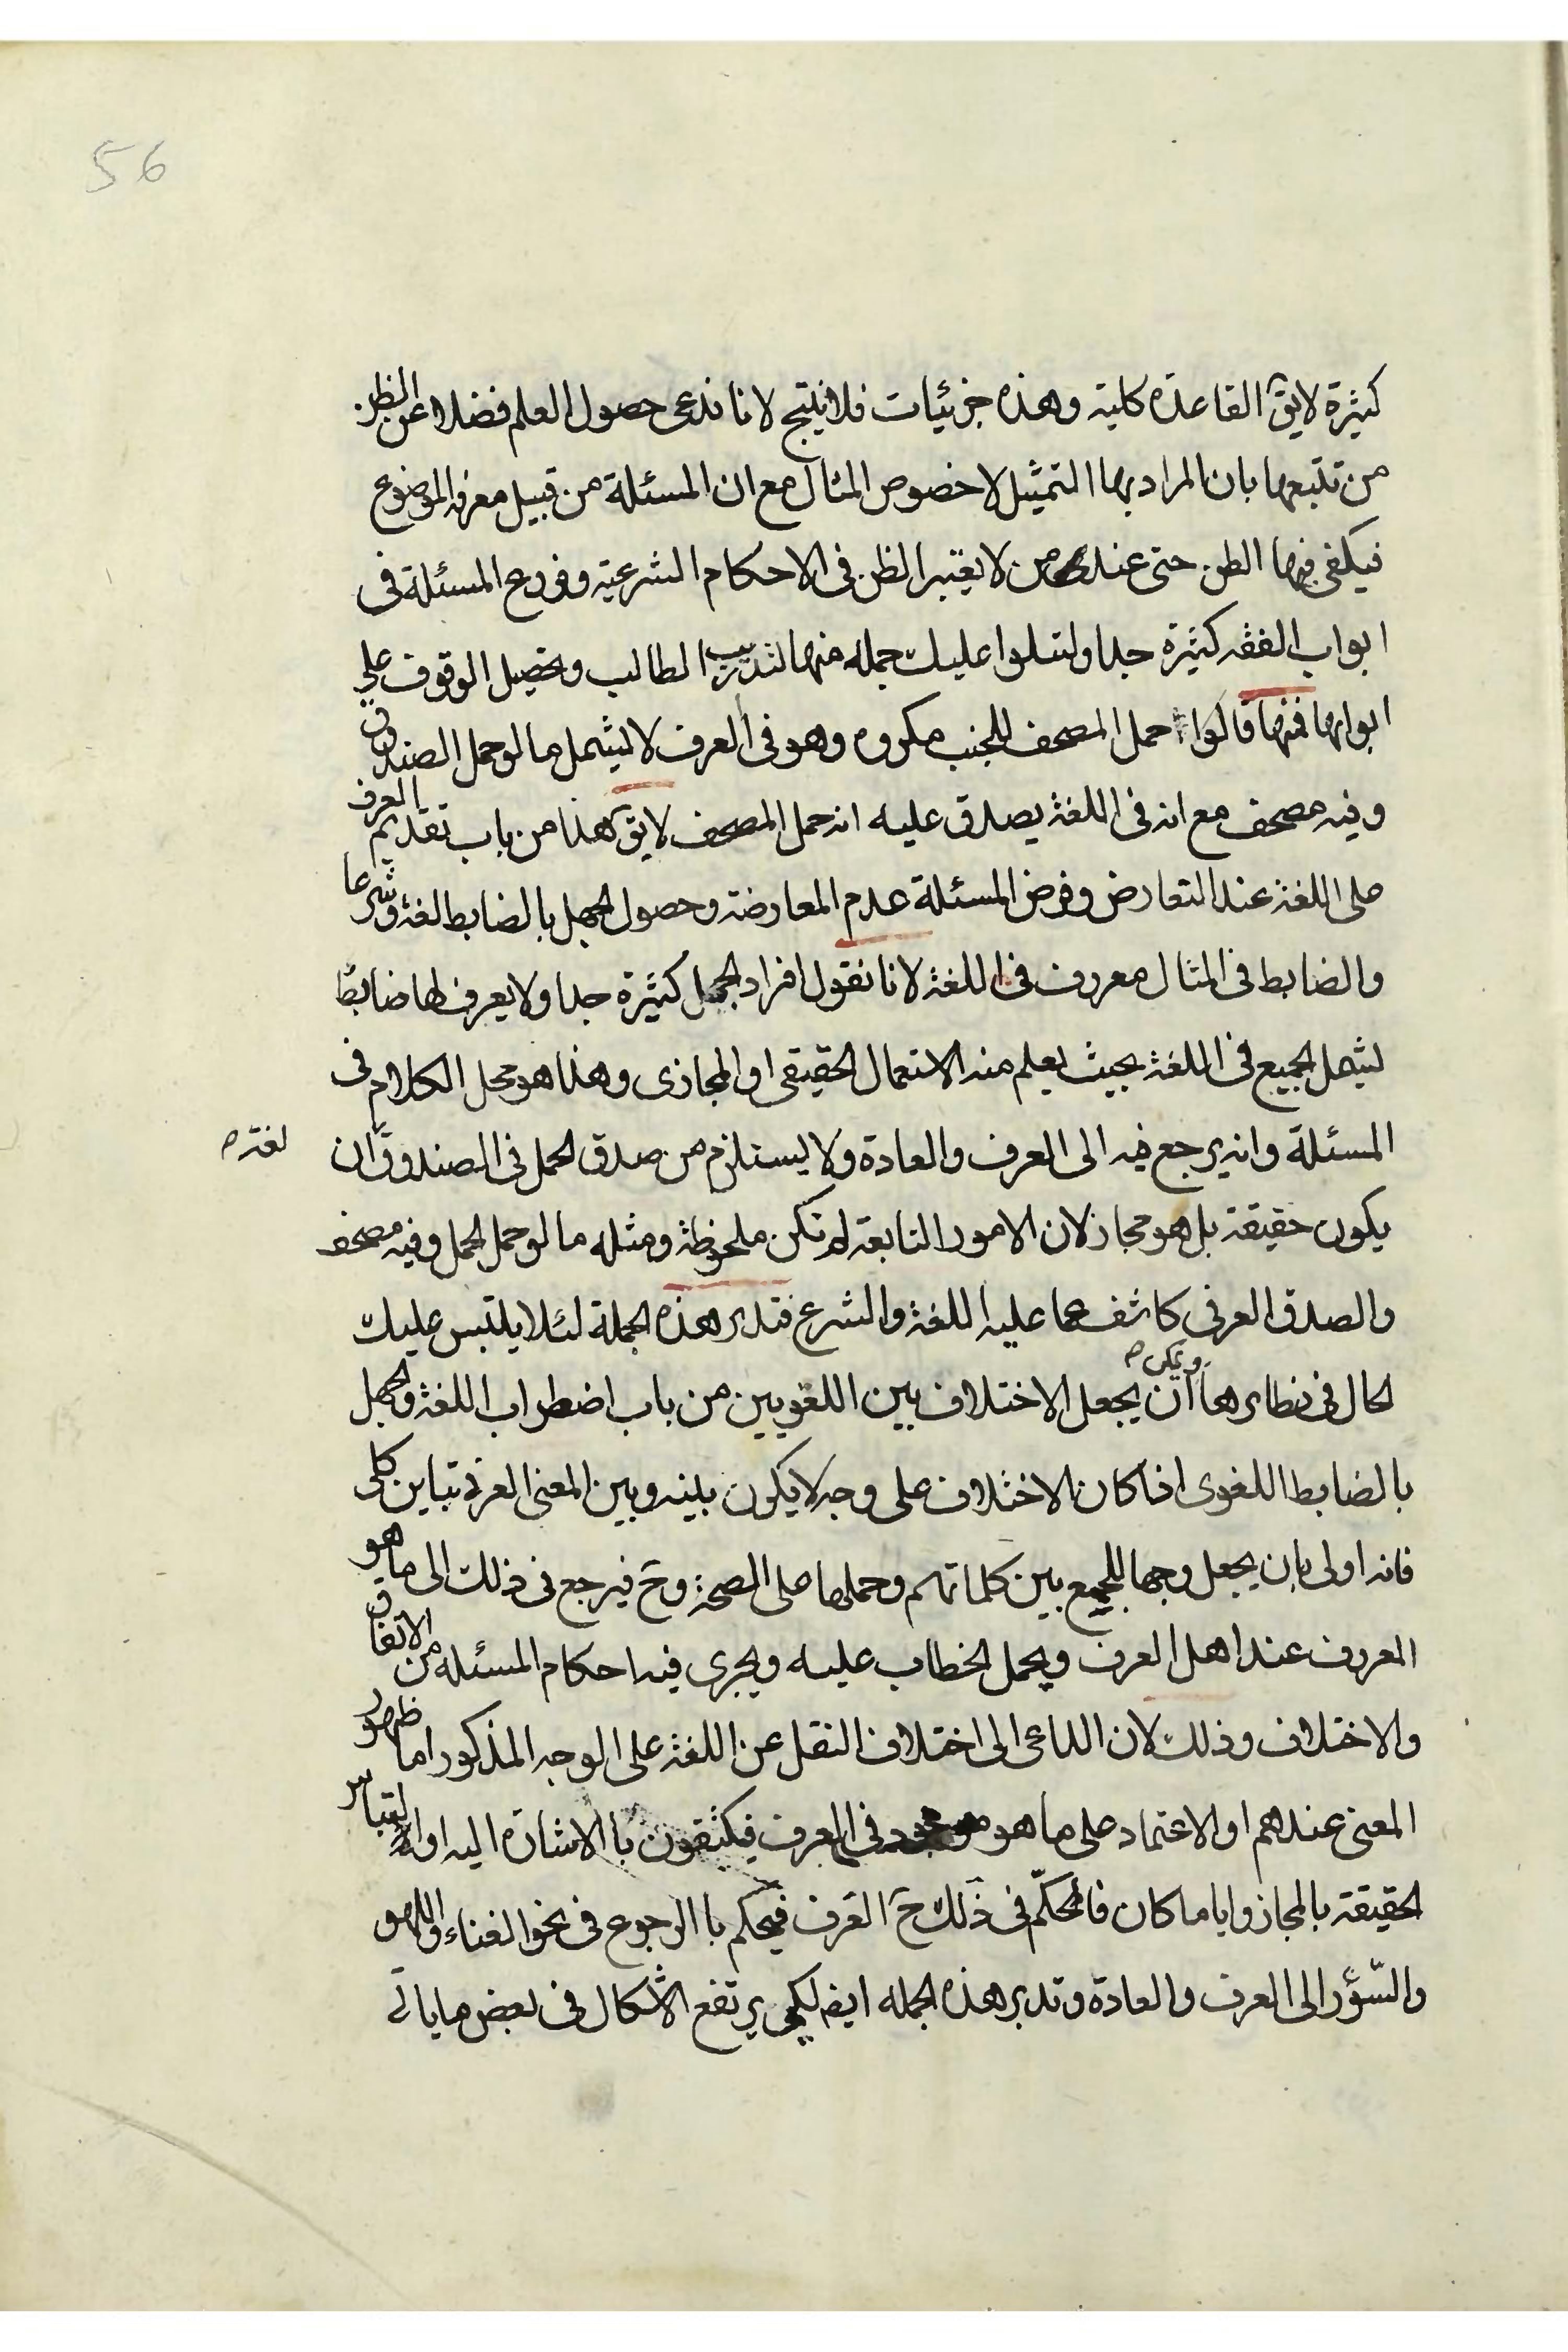 56
كثيرة لايقٓ القاعدة كلية وهذه جزئيات فلا ينتج لانا ندعى حصول العلم فضلا عن الظن
من تتبعها بان المراد بها التمثيل لا خصوص المثال مع ان المسئلة من قبيل معرفه الموضوع
فيكفى فيها الظن حتى عند من لا يعتبر الظن فى الاحكام الشرعية وفروع المسئلة فى
ابواب الفقه كثيرة جدا ولنتلوا عليك جمله منها لتدريب الطالب وتحصيل الوقوف على
ابوابها فمنها قالوا حمل المصحف للجنب مكروه وهو فى العرف لا يشمل مالو حمل الصندوق
وفيه مصحف مع انه فى اللغة يصدق عليه انه حمل المصحف لايقٓ هذا من باب تقديم العرف
على اللغة عند التعارض وفرض المسئلة عدم المعارضة وحصول الجهل بالضابط لغة وشرعا
والضابط فى المثال معروف فى اللغة لانا نقول افراد الحمل كثيرة جدا ولا يعرف لها ضابط
يشمل الجميع فى اللغة بحيث يعلم منه الاستعمال الحقيقى او المجازى وهذا هو محل الكلام فى
المسئلة وانه يرجع فيه الى العرف والعادة ولا يستلزم من صدق الحمل فى الصندوق ان
لغة ص
يكون حقيقة بل هو مجاز لان الامور التابعة لم تكن ملحوظة ومثله مالو حمل الحمل وفيه مصحف
والصدق العرفى كاشف عما عليه اللغة والشرع فتدبر هذه الجملة لئلا يلتبس عليك
ويمكن ص
الحال فى نظائرها ان يجعل الاختلاف بين اللغويين من باب اضطراب اللغة والجهل
بالضابط اللغوى اذا كان الاختلاف على وجه لا يكون بينه وبين المعنى العرفى تباين كلى
فانه اولى بان يجعل وجها للجمع بين كلماتهم وحملها على الصحة وحٓ فيرجع فى ذلك الى ما هو
المعروف عند اهل العرف ويحمل الخطاب عليه ويجرى فيه احكام المسئله من الاتفاق
والاختلاف وذلك لان الداعى الى اختلاف النقل عن اللغة على الوجه المذكور اما ظهور
المعنى عندهم او الاعتماد على ما هو موجود فى العرف فيكتفون باالاشارة اليه او التباس
الحقيقة بالمجاز وايا ما كان فالمحكّم فى ذلك حٓ العرف فيحكم باالرجوع فى نحو الغناء واللهو
والسّؤر الى العرف والعادة وتدبر هذه الجمله ايضا لكى يرتفع الاشكال فى بعض ما ياتى